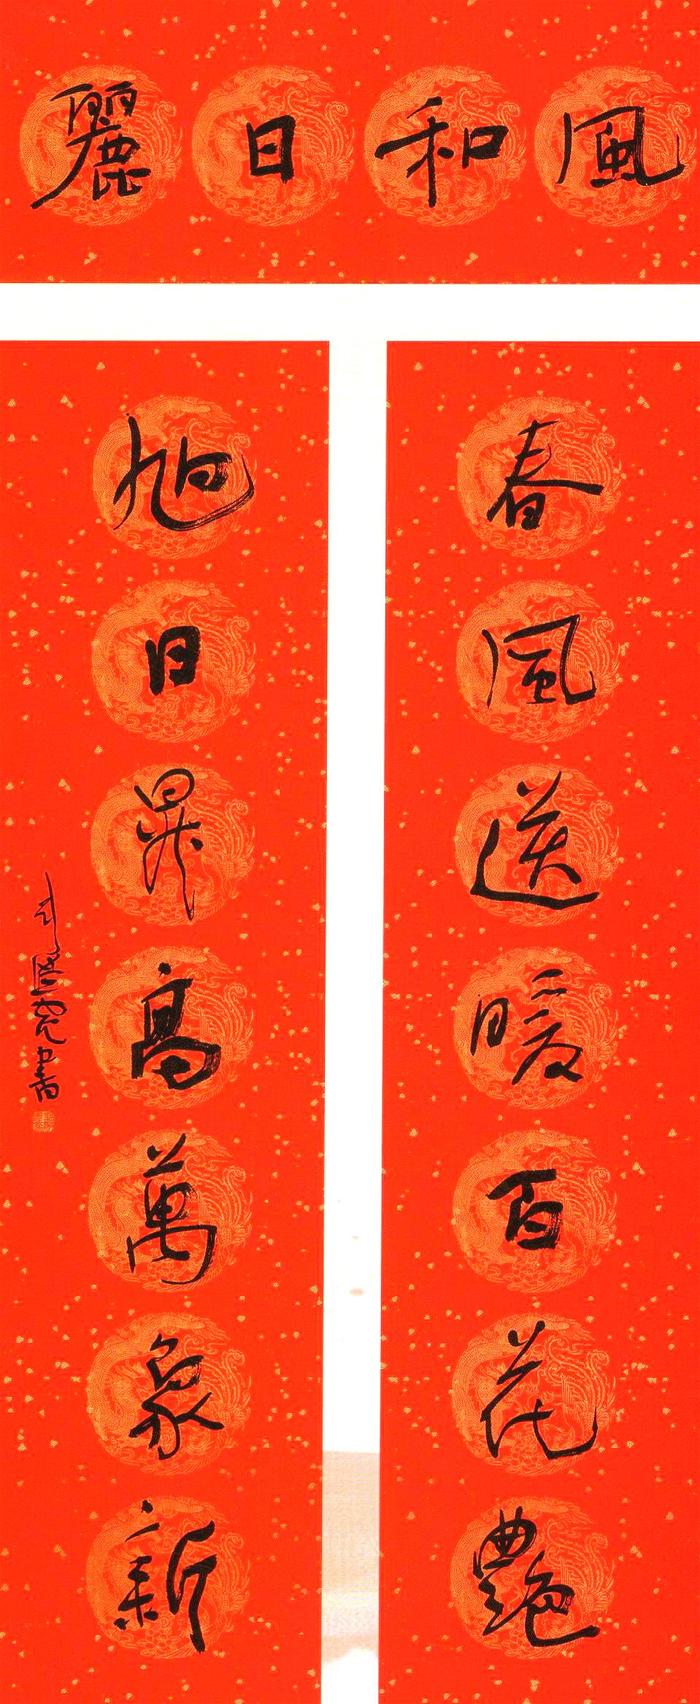 風和日麗
春風送暖百花艷
旭日昇高萬象新
書